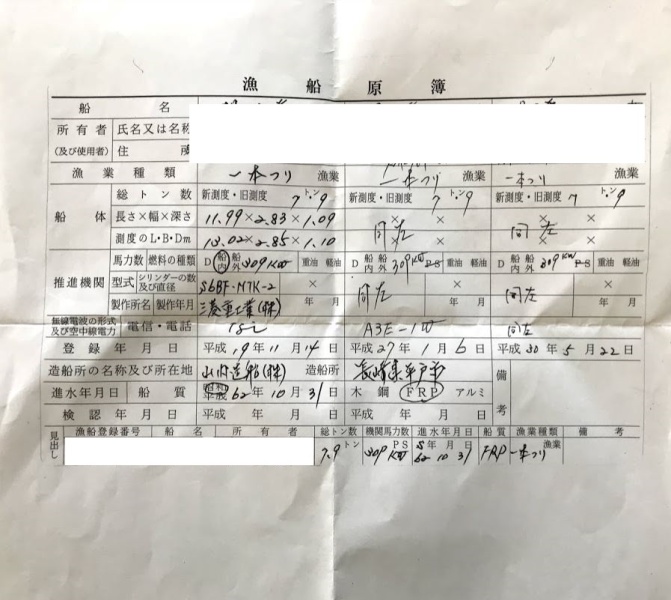 漁船原簿
船名
所有者 氏名又は名称
(及び使用者) 住所
漁業種類 一本つり 漁業 一本つり 漁業 一本つり 漁業
総トン数 新測度・旧測度 7トン9 新測度・旧測度 7トン9 新測度・旧測度 7トン9
船体 長さ×幅×深さ 11.99×2.83×1.09 × × × ×
測度のL・B・Dm 13.02×2.85×1.10 同左 同左
馬力数 燃料の種類 D 船内 船外 309KW 重油 軽油 D 船内 船外 309KW PS 重油 軽油 D 船内 船外 309KW PS 重油 軽油
推進機関 型式 シリンダーの数及び直径 S6BF-MTK-2 × 同左 × 同左 ×
製作所名 製作年月 三菱重工業(株) 年 月 年 月 年 月
無線電波の形式及び空中線電力 電信・電話 なし A3E-1W 同左
登録年月日 平成19年11月14日 平成27年1月6日 平成30年5月22日
造船所の名称及び所在地 山内造船(株) 造船所 長崎県平戸市 備考
進水年月日 船質 昭和 平成 62年10月31日 木 鋼 FRP アルミ
検認年月日 平成 年 月 日 平成 年 月 日
見出し 漁船登録番号 船名 所有者 総トン数 機関馬力数 進水年月日 船質 漁業種類 備考
7.9トン 309KW PS S年月日 62 10 31 FRP 一本つり 漁業